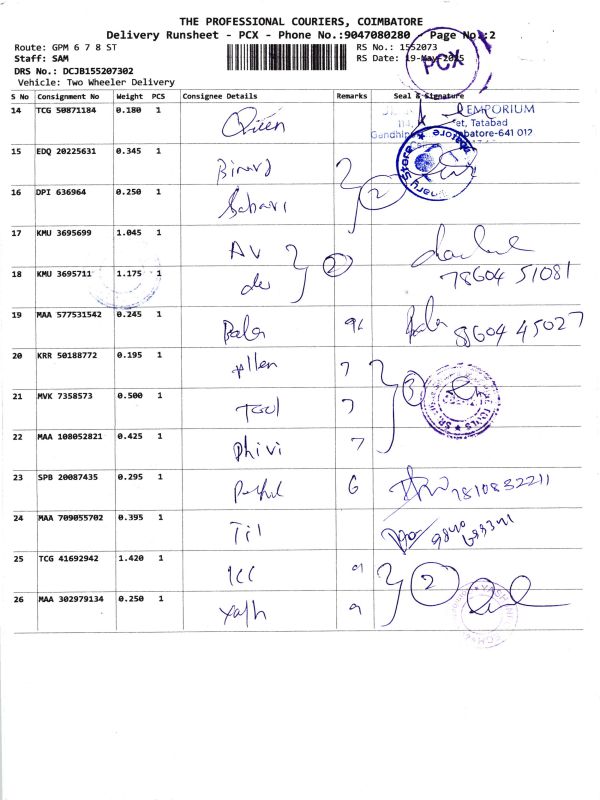 THE PROFESSIONAL COURIERS, COIMBATORE
Delivery Runsheet - PCX - Phone No.:9047080280 Page No.:2
Route: GPM 6 7 8 ST RS No.: 1552073
Staff: SAM RS Date: 19-May-2025
DRS No.: DCJB155207302 PCX
Vehicle: Two Wheeler Delivery
S No Consignment No Weight PCS Consignee Details Remarks Seal & Signature
14 TCG 50871184 0.180 1 Queen EMPORIUM
et, Tatabad
Gandhi batore-641 012
15 EDQ 20225631 0.345 1
16 DPI 636964 0.250 1 2
17 KMU 3695699 1.045 1 AV
18 KMU 3695711 1.175 1 2 78604 51081
19 MAA 577531542 0.245 1 Bala Bala 88604 45027
20 KRR 50188772 0.195 1 Allen 7
21 MVK 7358573 0.500 1 7 3
22 MAA 108052821 0.425 1 Dhivi 7
23 SPB 20087435 0.295 1 6 7810832211
24 MAA 709055702 0.395 1 Til
25 TCG 41692942 1.420 1 ICC 9 2
26 MAA 302979134 0.250 1 Yash 9